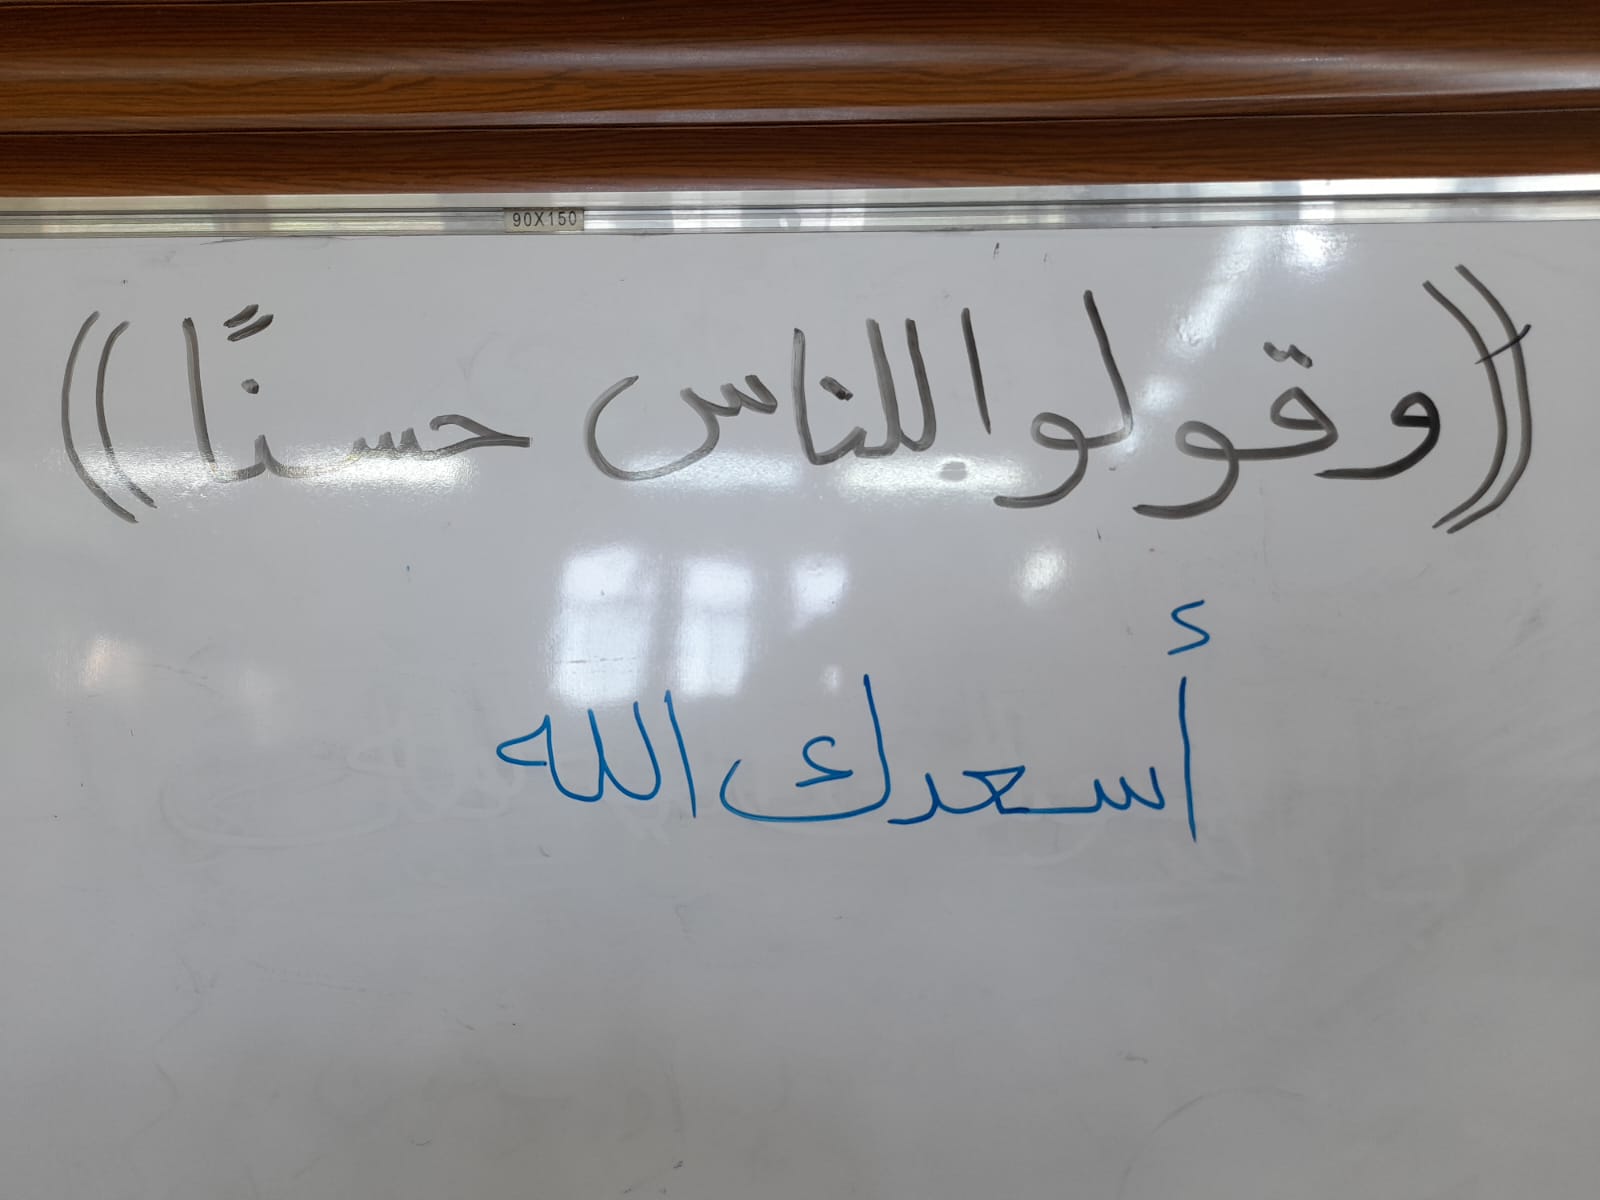 90X150
((وقولوا للناس حسنًا))
أسعدك الله